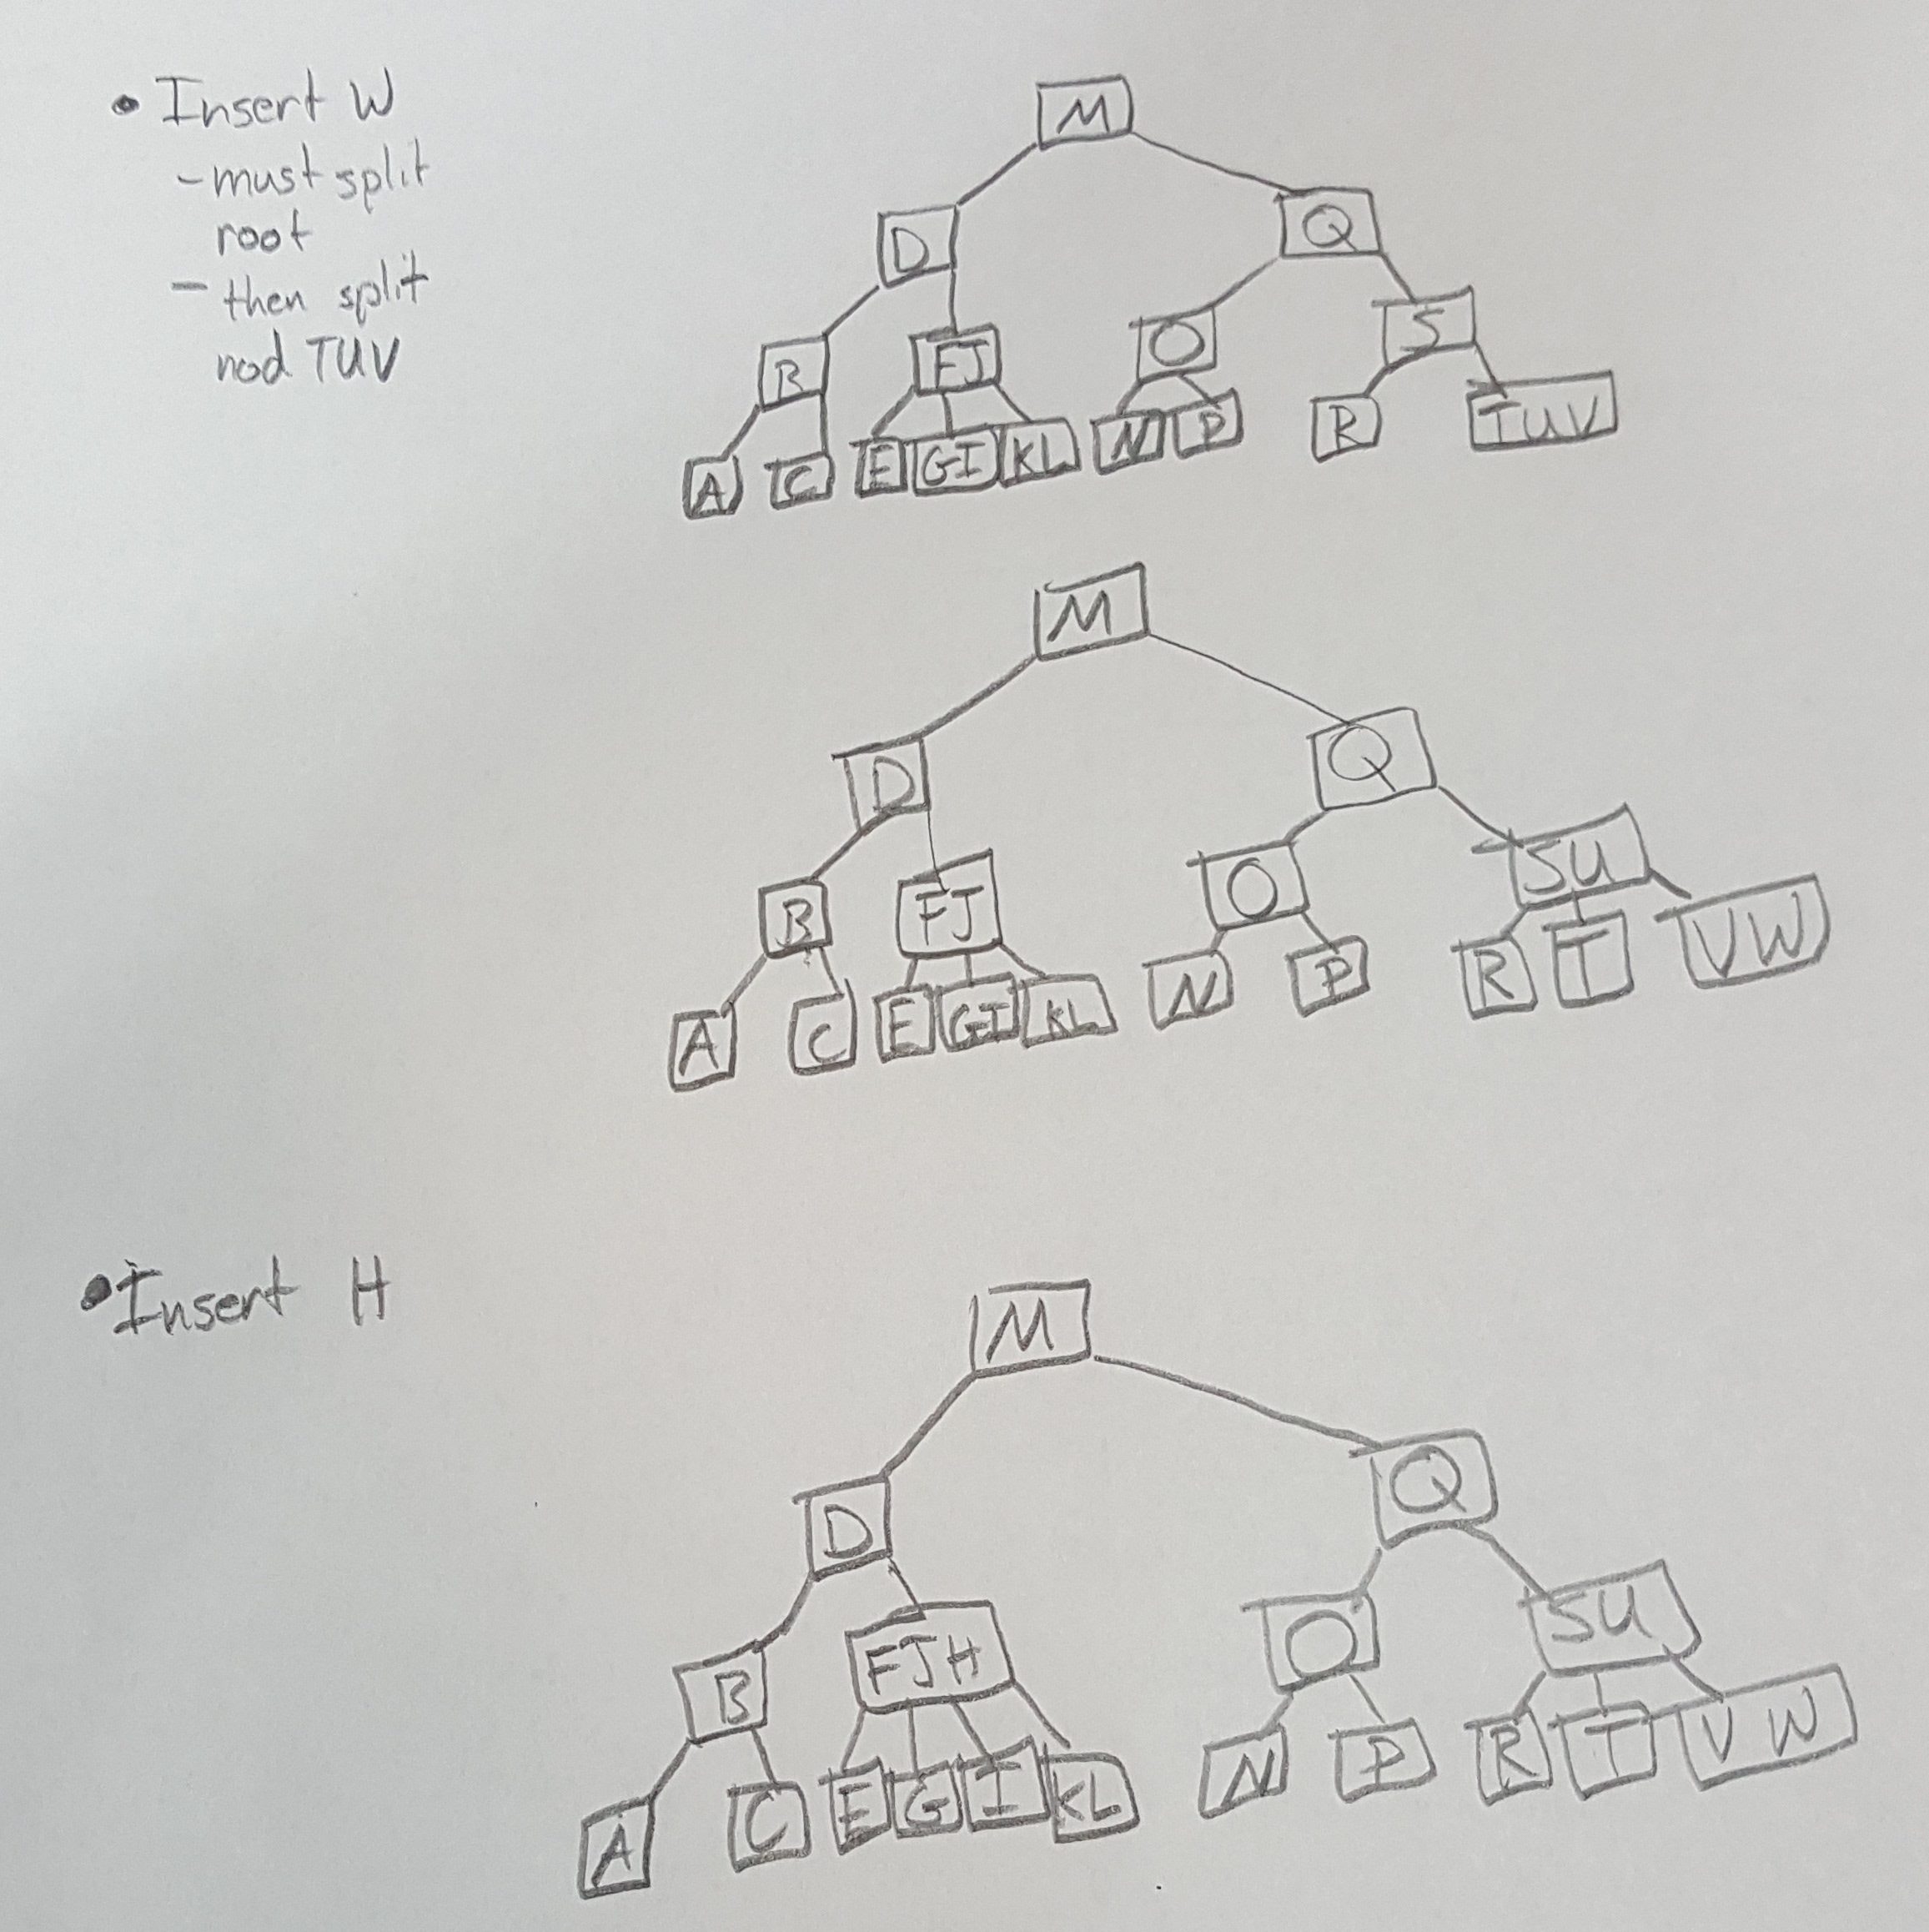 • Insert W
- must split
root
- then split
nod TUV
M
D Q
B FJ O S
A C E GI KL N P R TUV
M
D Q
B FJ O SU
A C E GI KL N P R T VW
• Insert H
M
D Q
B FJH O SU
A C E G I KL N P R T VW